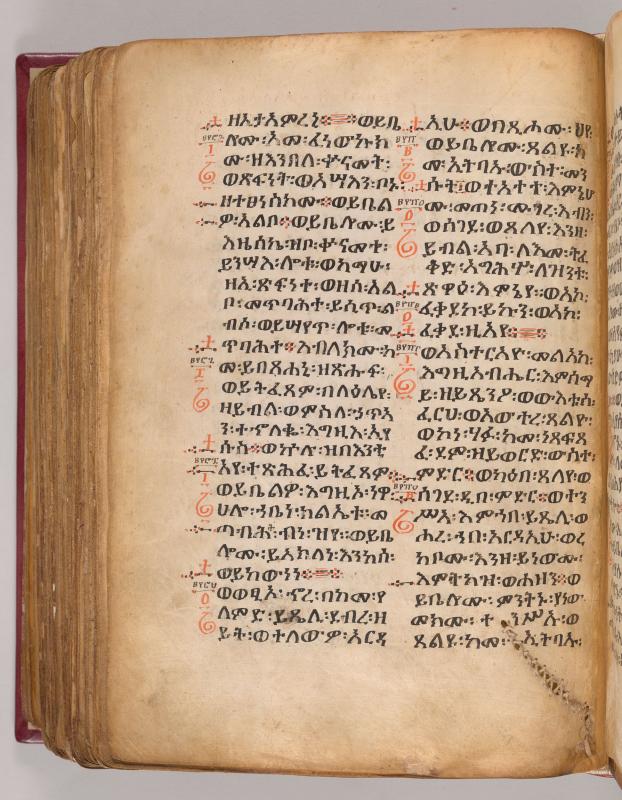 ዘኢታአምረኒ፨ወይቤ
ሎሙ፡አመ፡ፈነውኩክ
ሙ፡ዘእንበለ፡ቍናመት፡
ወጽፋነት፡ወአሣእን፡ቦኑ፡
ዘተፀነስክሙ፨ወይቤል
ዎ፡አልቦ፨ወይቤሎሙ፡ይ
እዜሰኬ፡ዘቦ፡ቍናመተ፡
ይንሣእ፡ሎቱ፡ወከማሁ፡
ዘኒ፡ጽፋነተ፡ወዘሰ፡አል
ቦ፡መጥባሕተ፡ይሲጥ፡ል
ብሶ፡ወይሣየጥ፡ሎቱ፡መ
ጥባሕተ፨እብለክሙ፡ከ
መ፡ይበጽሐኒ፡ዘጽሑፍ፡
ወይትፈጸም፡በላዕሌየ፡
ዘይብል፡ወምስለ፡ኃጥኣ
ን፡ተኈለቈ፡እግዚእ፡ኢየ
ሱስ፨ወኵሉ፡ዘበእንተ
አየ፡ተጽሕፈ፡ይትፈጸም፨
ወይቤልዎ፡እግዚኦ፡ነዋ
ሀሎ፡ኀቤነ፡ክልኤቱ፡መ
ጣብሕት፡ብነ፡ዝየ፡ወይቤ
ሎሙ፡ይአክለነ፡እንከሰ፡
ወይከውነነ፨
ወወፂኦ፡ሖረ፡በከመ፡የ
ለምድ፡ደብረ፡ዘ
ይት፡ወተለውዎ፡አርዳ
አሁ፨ወበጺሖሙ፡ህየ
ወይቤሎሙ፡ጸልዩ፡ከ
መ፡ኢትባኡ፡ውስተ፡መን
ሱት፡ወተአተተ፡እምኔሆ
ሙ፡መጠነ፡ሙገረ፡እብን፡
ወሰገደ፡ወጸለየ፡እንዘ፡
ይብል፡አባ፡ለእመ፡ትፈ
ቅድ፡አግሕሦ፡ለዝንቱ፡
ጽዋዕ፡እምኔየ፡ወአኮ፡
ፈቃደከ፡ይኩን፡ወአኮ፡
ፈቃደ፡ዚአየ፨
ወአስተርአዮ፡መልአከ፡
እግዚአብሔር፡እምሰማ
ይ፡ዘይጼንዖ፡ወውእቱሰ፡
ፈርህ፡ወአውተረ፡ጸልዮ፡
ወኮነ፡ሃፉ፡ከመ፡ነጸፍጻ
ፈ፡ደም፡ዘይወርድ፡ውስተ፡
ምድር፨ወካዕበ፡ጸለየ፡ወ
ሰገደ፡ዲበ፡ምድር፨ወተን
ሥአ፡እምኀበ፡ይጼሊ፡ወ
ሖረ፡ኀበ፡አርዳኢሁ፡ወረ
ከቦሙ፡እንዘ፡ይነውሙ፡
እምትካዝ፡ወሐዘን፨ወ
ይቤሎሙ፡ምንትኑ፡ያነው
መክሙ፡ተንሥኡ፡ወ
ጸልዩ፡ከመ፡ኢትባኡ፡